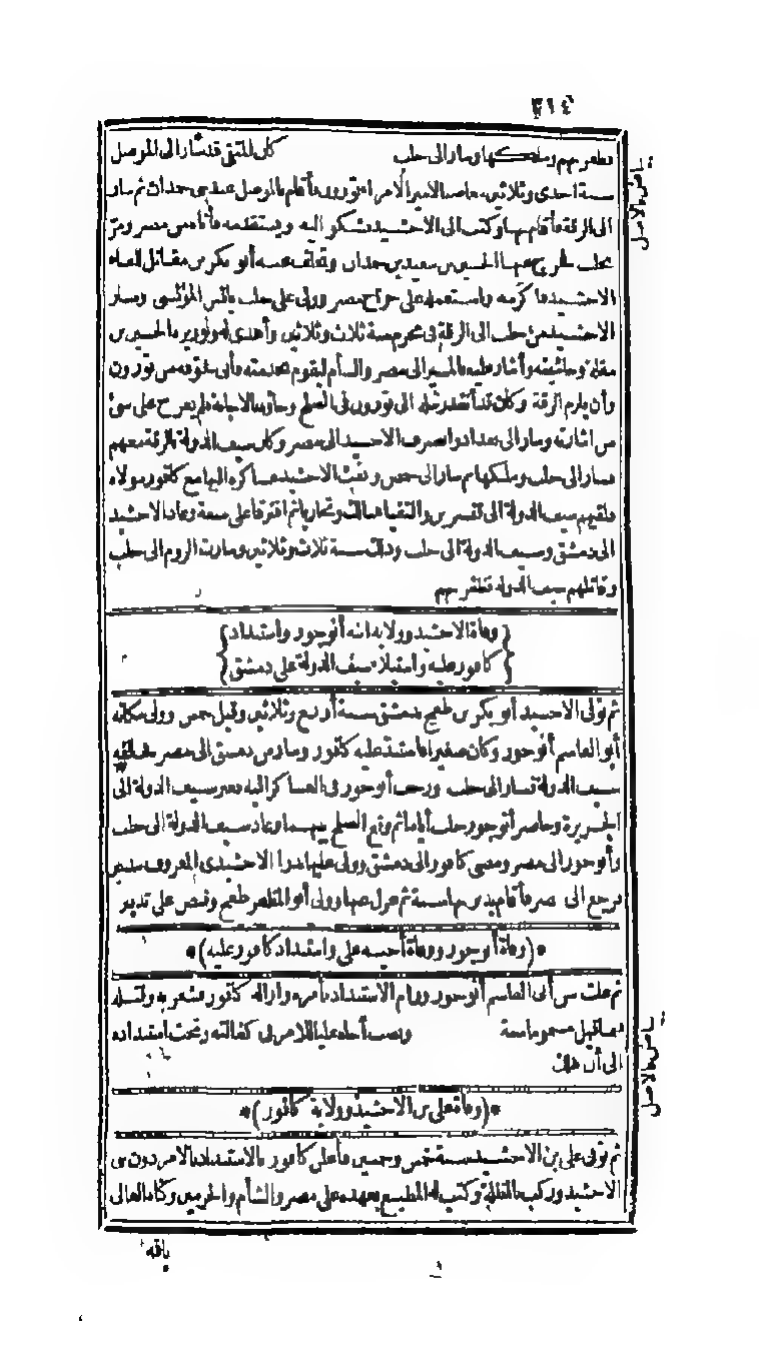 ٣١٤
فظفر بهم وملكها وسار الى حلب كان المتقى قد سار الى الموصل
سنة احدى وثلاثين مغاضبا الامير الامراء توزون فأقام بالموصل عند بنى حمدان ثم سار
الى الرقة فأقام بها وكتب الى الاخشيد يشكو اليه ويستقدمه فأتاه من مصر ومرّ
بحلب فخرج عنها الحسين بن سعيد بن حمدان وتخلف عنه أبو بكر بن مقاتل للقاء
الاخشيد فأكرمه واستعمله على خراج مصر وولى على حلب يانس المؤنسى وسار
الاخشيد من حلب الى الرقة فى محرم سنة ثلاث وثلاثين وأهدى له ولوزيره الحسين بن
مقلة وحاشيته وأشار عليه بالمسير الى مصر والشأم ليقوم بخدمته فأبى فخوفه من توزون
وأن يلزم الرقة وكان قد أنفذ رسله الى توزون فى الصلح وجاؤه بالاجابة فلم يعرج على شئ
من اشارته وسار الى بغداد وانصرف الاخشيد الى مصر وكان سيف الدولة بالرقة معهم
فسار الى حلب وملكها ثم سار الى حمص وبعث الاخشيد عساكره اليها مع كافور مولاه
فلقيهم سيف الدولة الى قنسرين والتقيا هنالك وتحاربا ثم افترقا على منعة وعاد الاخشيد
الى دمشق وسيف الدولة الى حلب وذلك سنة ثلاث وثلاثين وسارت الروم الى حلب
وقاتلهم سيف الدولة فظفر بهم
{وفاة الاخشيد وولاية ابنه أنوجور واستبداد}
{كافور عليه واستيلاء سيف الدولة على دمشق}
ثم توفى الاخشيد أبو بكر بن طغج بدمشق سنة أربع وثلاثين وقيل خمس وولى مكانه
أبو القاسم أنوجور وكان صغيرا فاستبد عليه كافور وسار من دمشق الى مصر فخالفه
سيف الدولة فسار الى حلب وزحف أنوجور فى العساكر اليه فعبر سيف الدولة الى
الجزيرة وحاصر أنوجور حلب أياما ثم وقع الصلح بينهما وعاد سيف الدولة الى حلب
وأنوجور الى مصر ومضى كافور الى دمشق وولى عليها بدرا الاخشيدى المعروف ببدير
فرجع الى مصر فأقام بدير بها سنة ثم عزل عنها وولى أبو المظفر طغج وقبض على تدبير
*(وفاة أنوجور ووفاة أخيه على واستبداد كافور عليه)*
ثم علت سن أبى القاسم أنوجور ورام الاستبداد بأمره وازالة كافور فشعر به وقتله
فيما قيل مسموما سنة ونصب أخاه عليا للامر فى كفالته وتحت استبداده
الى أن هلك
*(وفاة على بن الاخشيد وولاية كافور)*
ثم توفى على بن الاخشيد سنة خمس وخمسين فأعلن كافور بالاستبداد بالامر دون بنى
الاخشيد وركب بالمظلة وكتب له المطيع بعهده على مصر والشأم والحرمين وكناه العالى
بالله
بياض بالاصل
بياض بالاصل